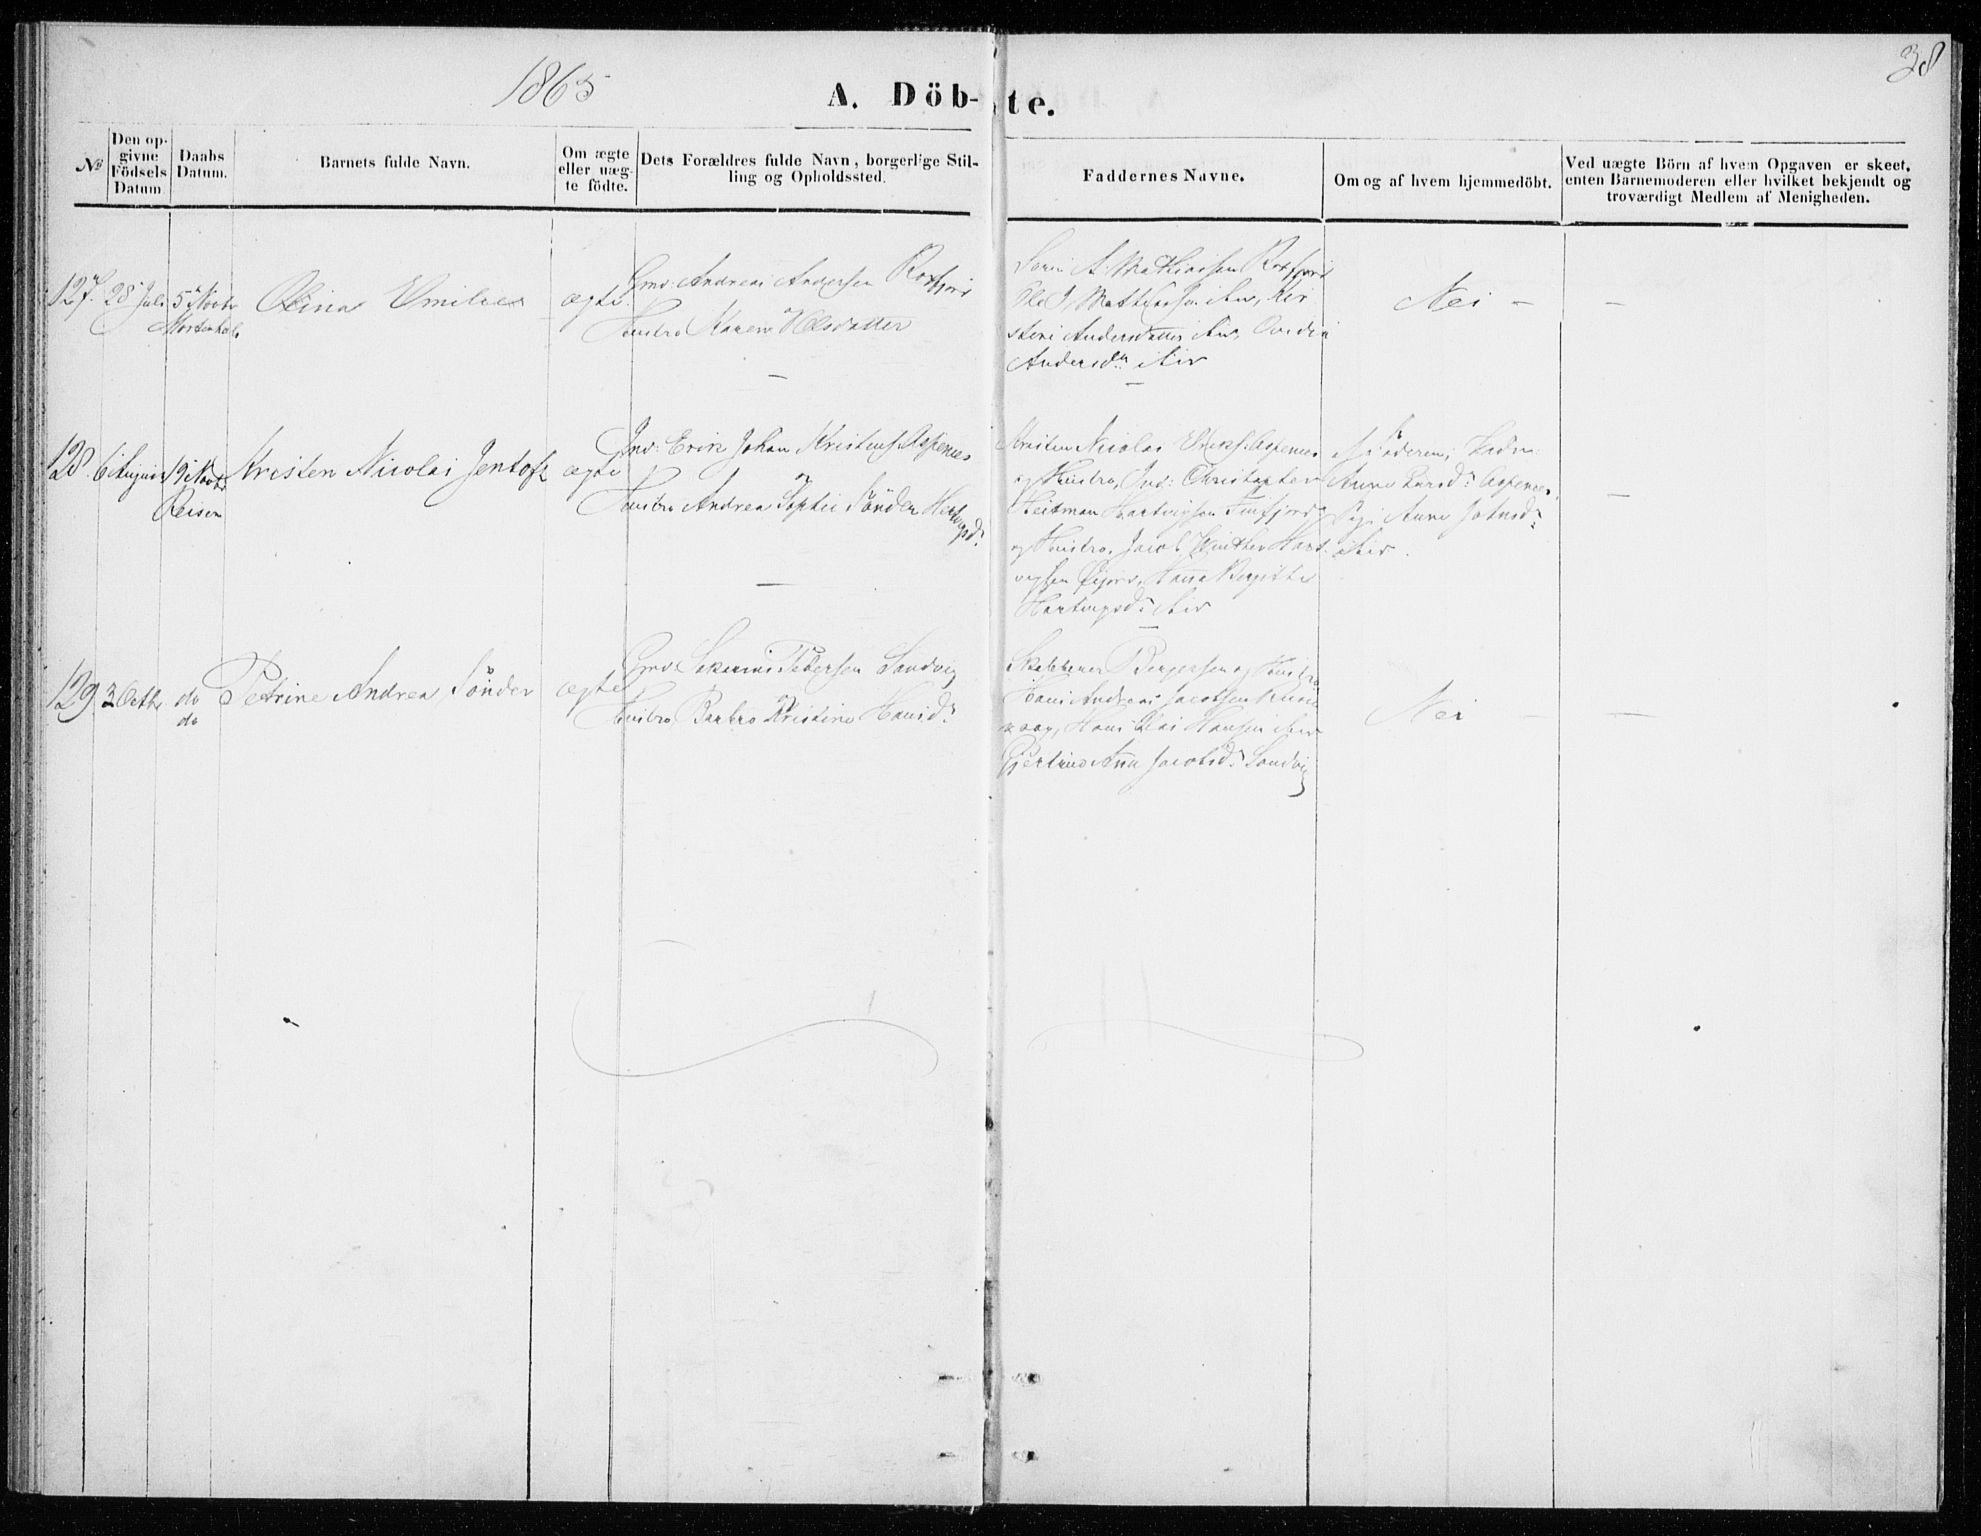 1865
A. Döb-te.
38
№
Den op-
givne
Födsels
Datum
Daabs
Datum.
Barnets fulde Navn.
Om ægte
eller uæg-
te födte.
Dets Forældres fulde Navn, borgerlige Stil-
ling og Opholdssted.
Faddernes Navne.
Om og af hvem hjemmedöbt.
Ved uægte Börn af hvem Opgaven er skeet,
enten Barnemoderen eller hvilket bekjendt og
troværdigt Medlem af Menigheden.
127. 28 Juli 5 Novbr
Mortenhals
Olina Emilie
ægte
Gmd. Andreas Andersen Rossfjord
Hustro Maren Olsdatter
Mathiasen Rossfjord
Ole J. Mathiasen ibid, Kir
stine Andersdatter ibid,
Andersdr. ibid
Nei – –
128. 6 August 19 Novbr
Reisen
Kristen Nicolai Jentoft
ægte
Ind: Erik Johan Kristens. Aspenes
og
Hustro Andrea Sophie Sönder Hartvigsd.
Kristen Nicolai Eriks. Aspenes
og Hustro, Ind: Christopher
Heitman Hartvigsen Finfjord
og Hustro, Jacob Winther Hart
vigsen, Hanna Bergitte
Hartvigsd. ibid
Anne Larsd. Aspenes,
Pige Anne Johnsd.
ibid.
–
129. 3 Octbr. do
do
Petrine Andrea Sönder
ægte
Gmd. Pedersen Sandvig
og
Hustro Barbro Kristine Hansd.
Bergersen og Hustro
Hans Andreas Jacobsen
vaag, Hans Hansen ibid
Gjertrud Ana Jacobsd. Sandvig
Nei – –